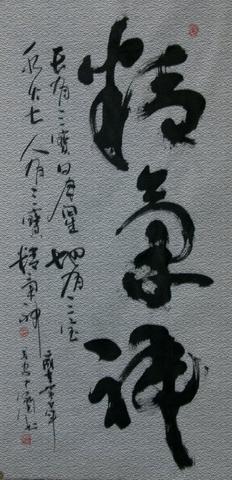 精氣神
天有三寶日月星地有三宝
水火土人有三寶精氣神